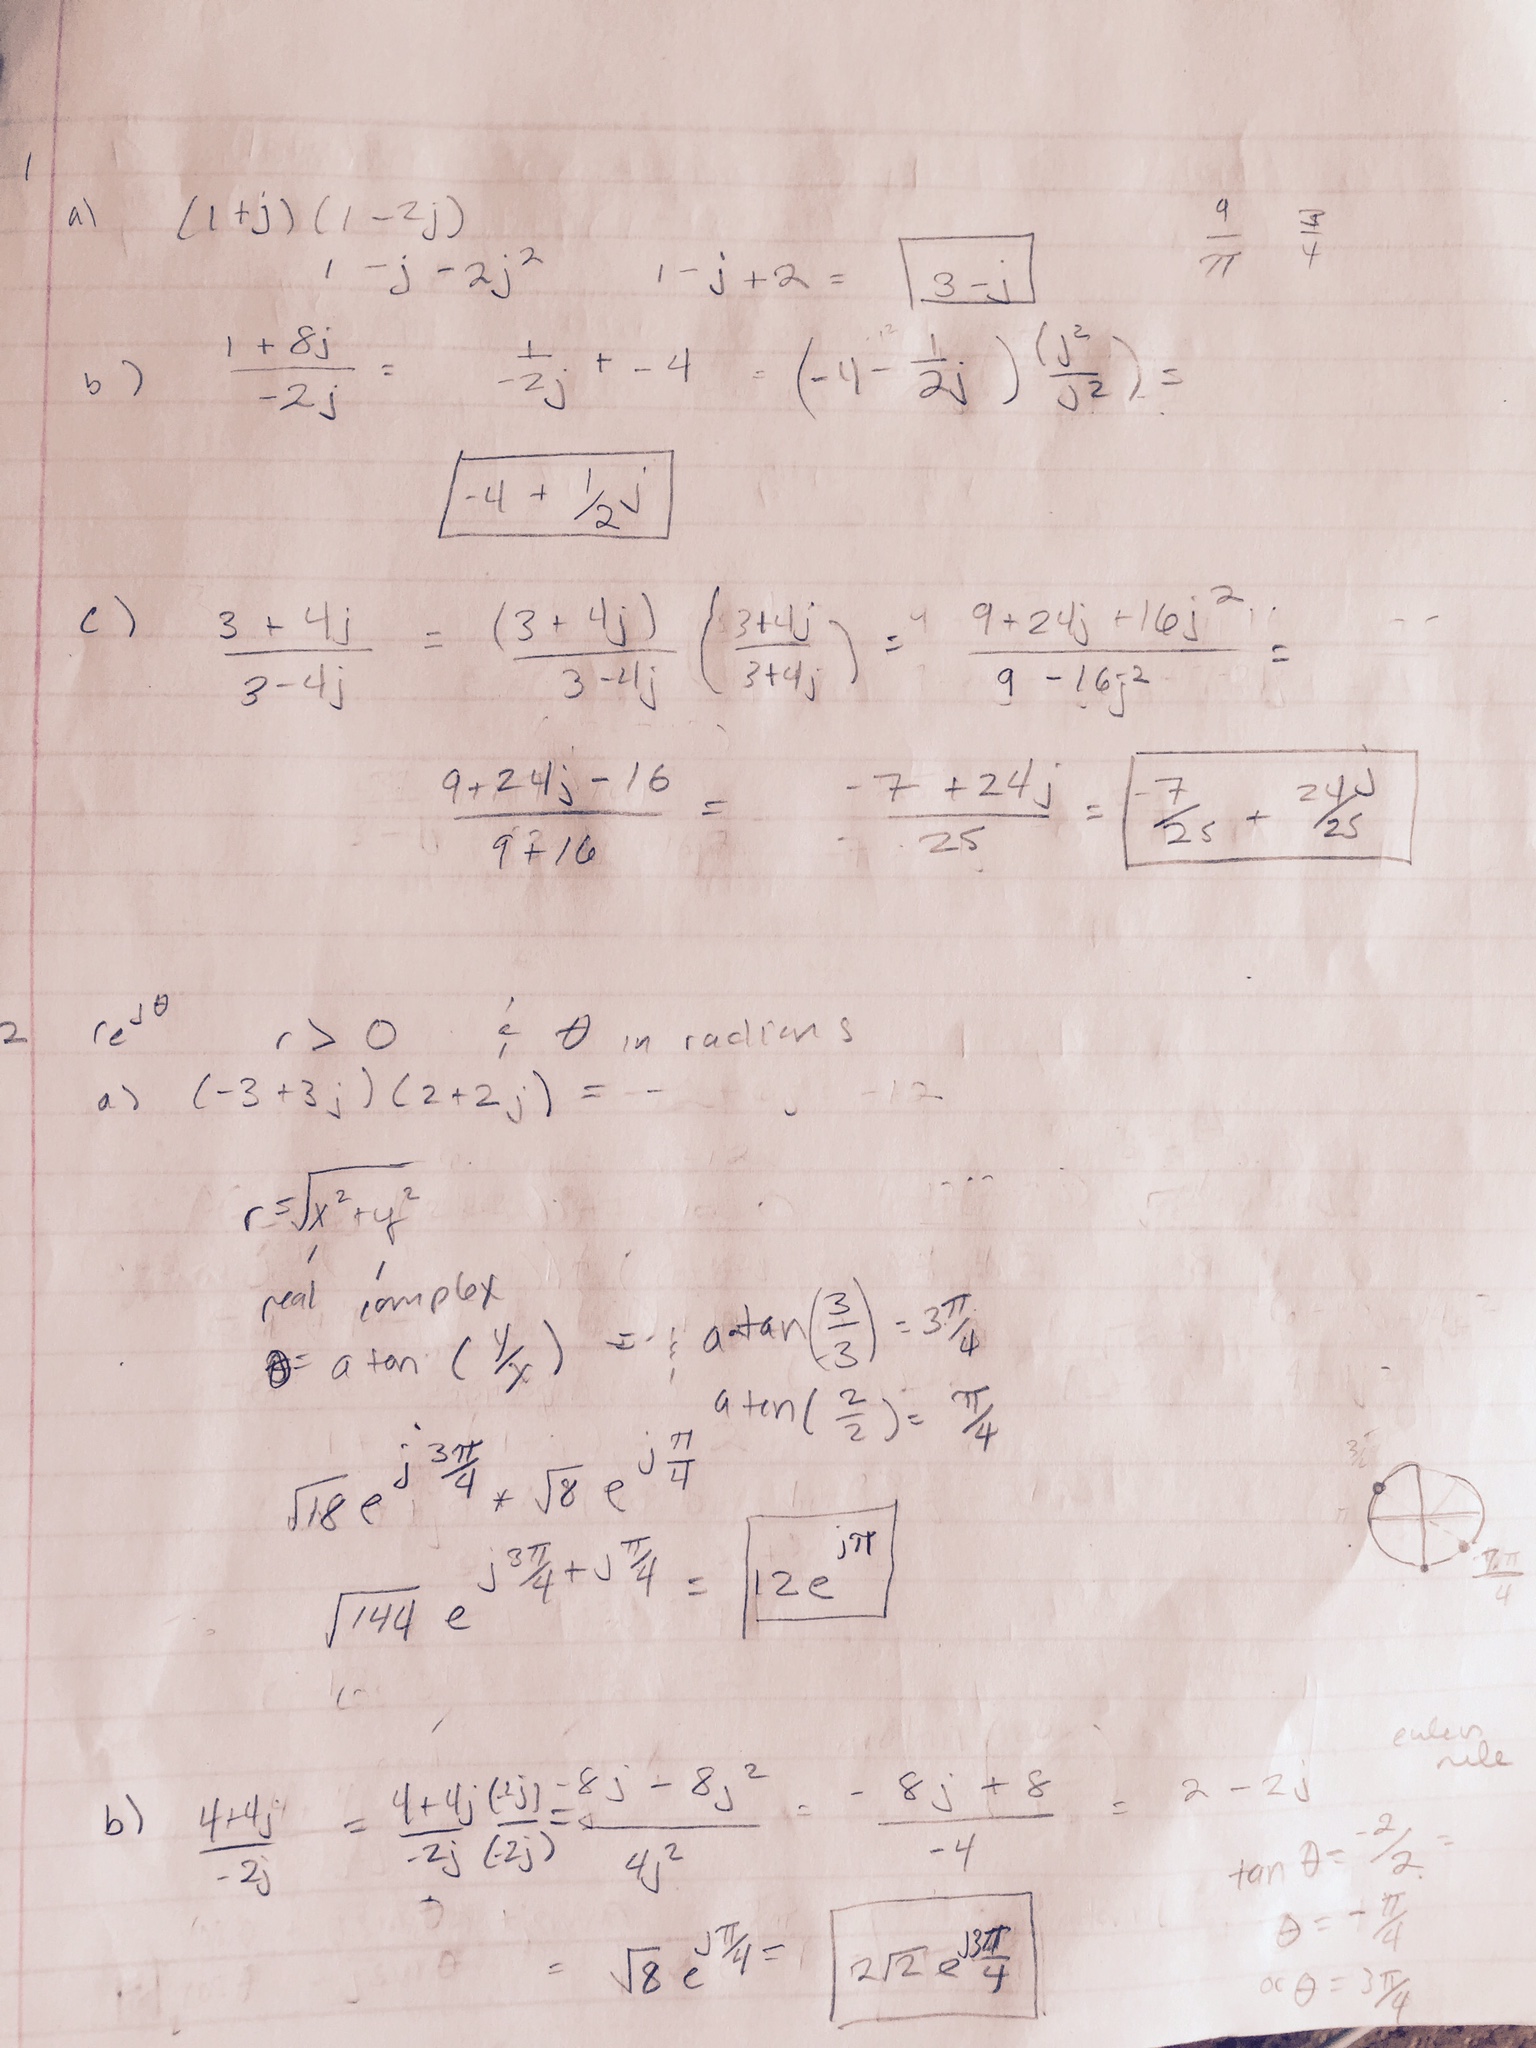 1
a) (1+j)(1-2j)
1-j-2j² 1-j+2 = 3-j
9/π π/4
b) (1+8j)/(-2j) = 1/(-2j) + -4 = (-4 - 1/(2j))(j²/j²) =
-4 + 1/2 j
c) (3+4j)/(3-4j) = (3+4j)/(3-4j) ((3+4j)/(3+4j)) = (9+24j+16j²)/(9-16j²) =
(9+24j-16)/(9+16) = (-7+24j)/25 = -7/25 + 24j/25
2 re^jθ r>0 & θ in radians
a) (-3+3j)(2+2j) = -12
r=√(x²+y²)
real complex
θ= atan(y/x) = atan(3/-3) = 3π/4
atan(2/2) = π/4
√18 e^(j 3π/4) * √8 e^(j π/4)
√144 e^(j3π/4+jπ/4) = 12e^jπ
-π/4
eulers
rule
b) (4+4j)/(-2j) = (4+4j)/(-2j) (-2j)/(-2j) = (-8j-8j²)/(4j²) = (-8j+8)/(-4) = 2-2j
tan θ = -2/2 =
θ = -π/4
= √8 e^(jπ/4) = 2√2 e^(j3π/4)
or θ = 3π/4